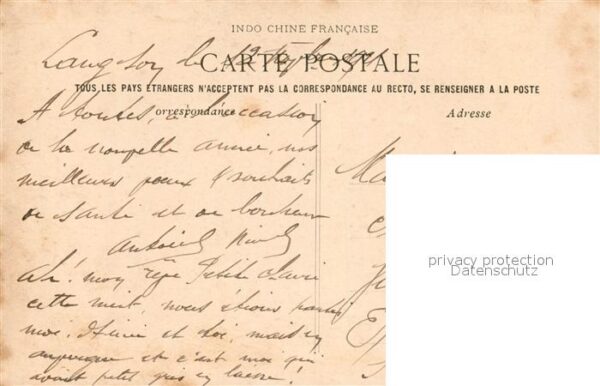 INDO CHINE FRANÇAISE
Langson le 12
CARTE POSTALE
TOUS LES PAYS ETRANGERS N'ACCEPTENT PAS LA CORRESPONDANCE AU RECTO, SE RENSEIGNER A LA POSTE
Correspondance
Adresse
A toutes, à l'occasion
de la nouvelle année, nos
meilleurs vœux & souhaits
de santé et de bonheur
ah! mon Petite
cette nuit, nous étions partis
moi, et toi, mais en
auvergne et c'est moi qui
avait petit gris en laisse!
privacy protection
Datenschutz